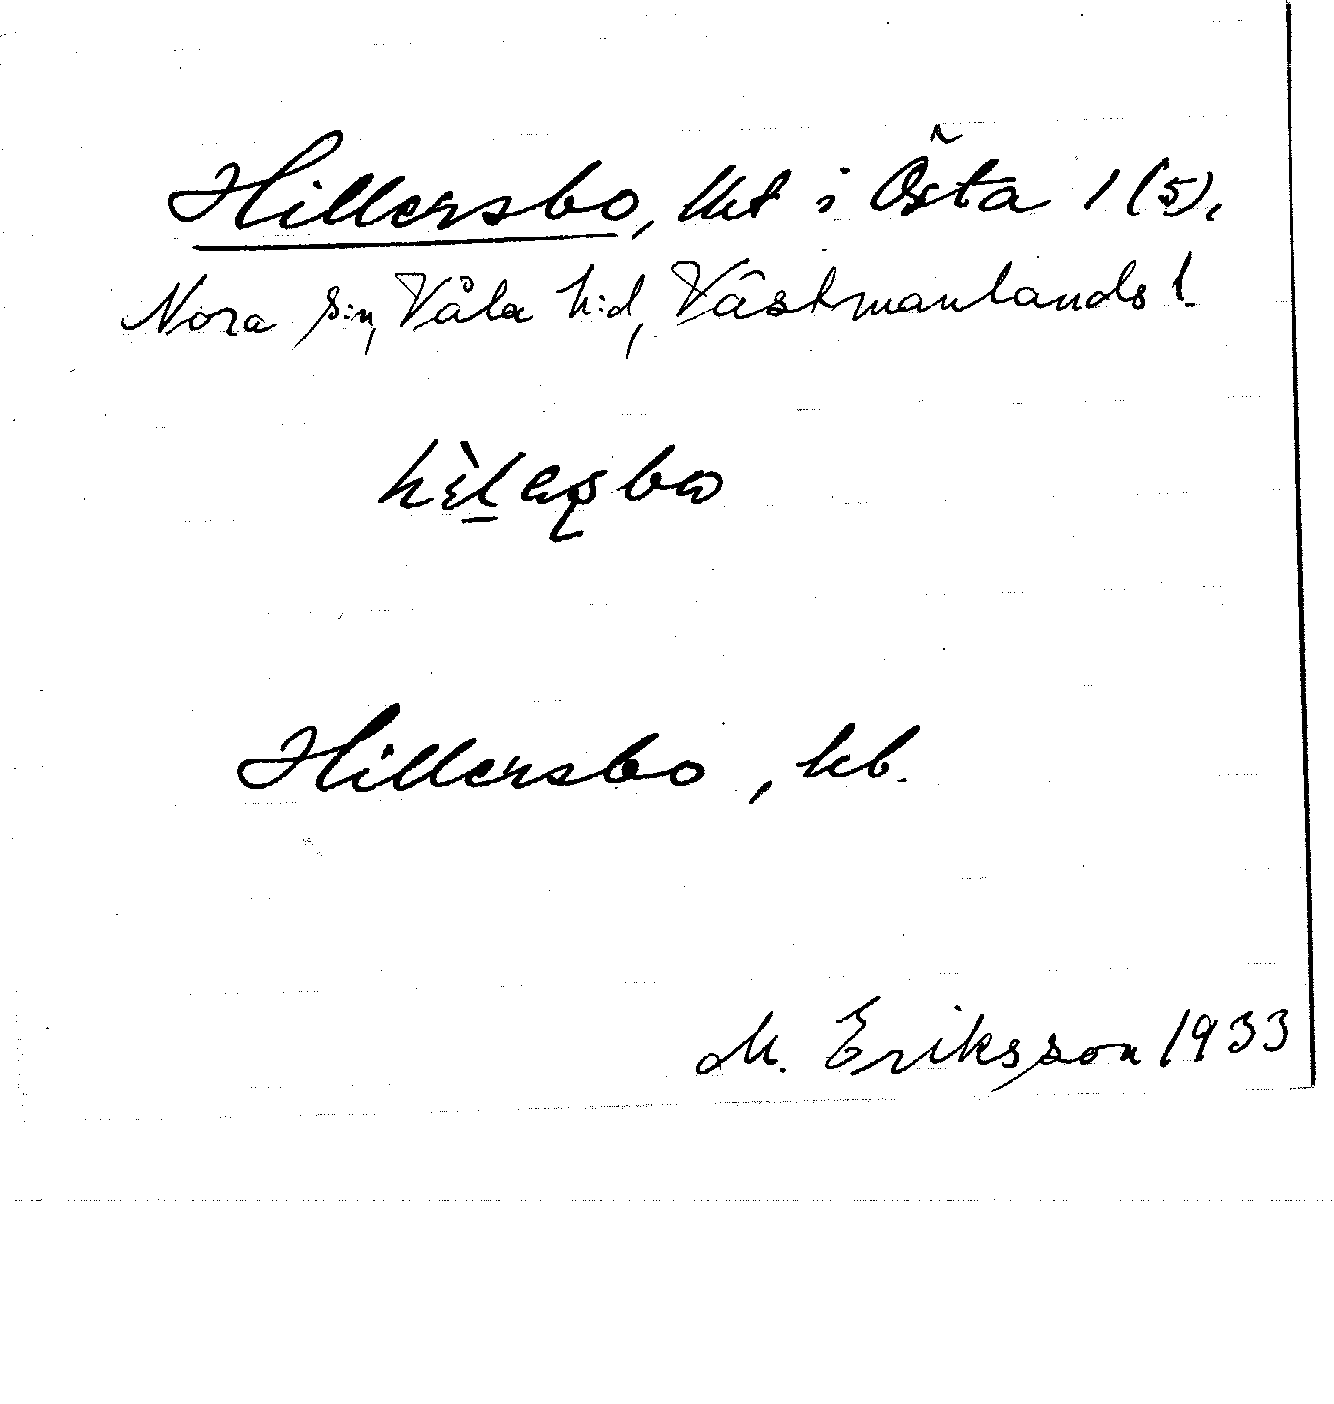 Hillersbo, lht i Östa 1 (5),
Nora s:n, Våla h:d, Västmanlands l.
Hillersbo, kb.
M. Eriksson 1933